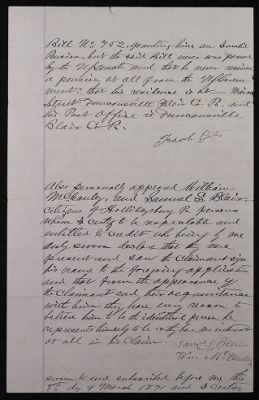 Bill No 752, granting him an Invalid
Pension, but the said bill never was passed
by the U.S. Senate and that he never received
a pension at all from the U.S. Govern-
ment: that his residence is at Main
Street Duncansville Blair Co Pa. and
his Post Office is Duncansville
Blair Co Pa.
Jacob
Also personally appeared William
McCauley, and Samuel S. Blair
citizens of Hollidaysburg Pa persons
whom I certify to be respectable and
entitled to credit who being by me
duly sworn declare that they were
present and saw the claimant sign
his name to the foregoing application
and that from the appearance of
the Claimant and their acquaintance
with him they have every reason to
believe him to be the identical person he
represents himself to be & they have no interest
at all in his Claim.
Sam S Blair
Wm McCauley
sworn to and subscribed before me this
day of March 1891 and I certify